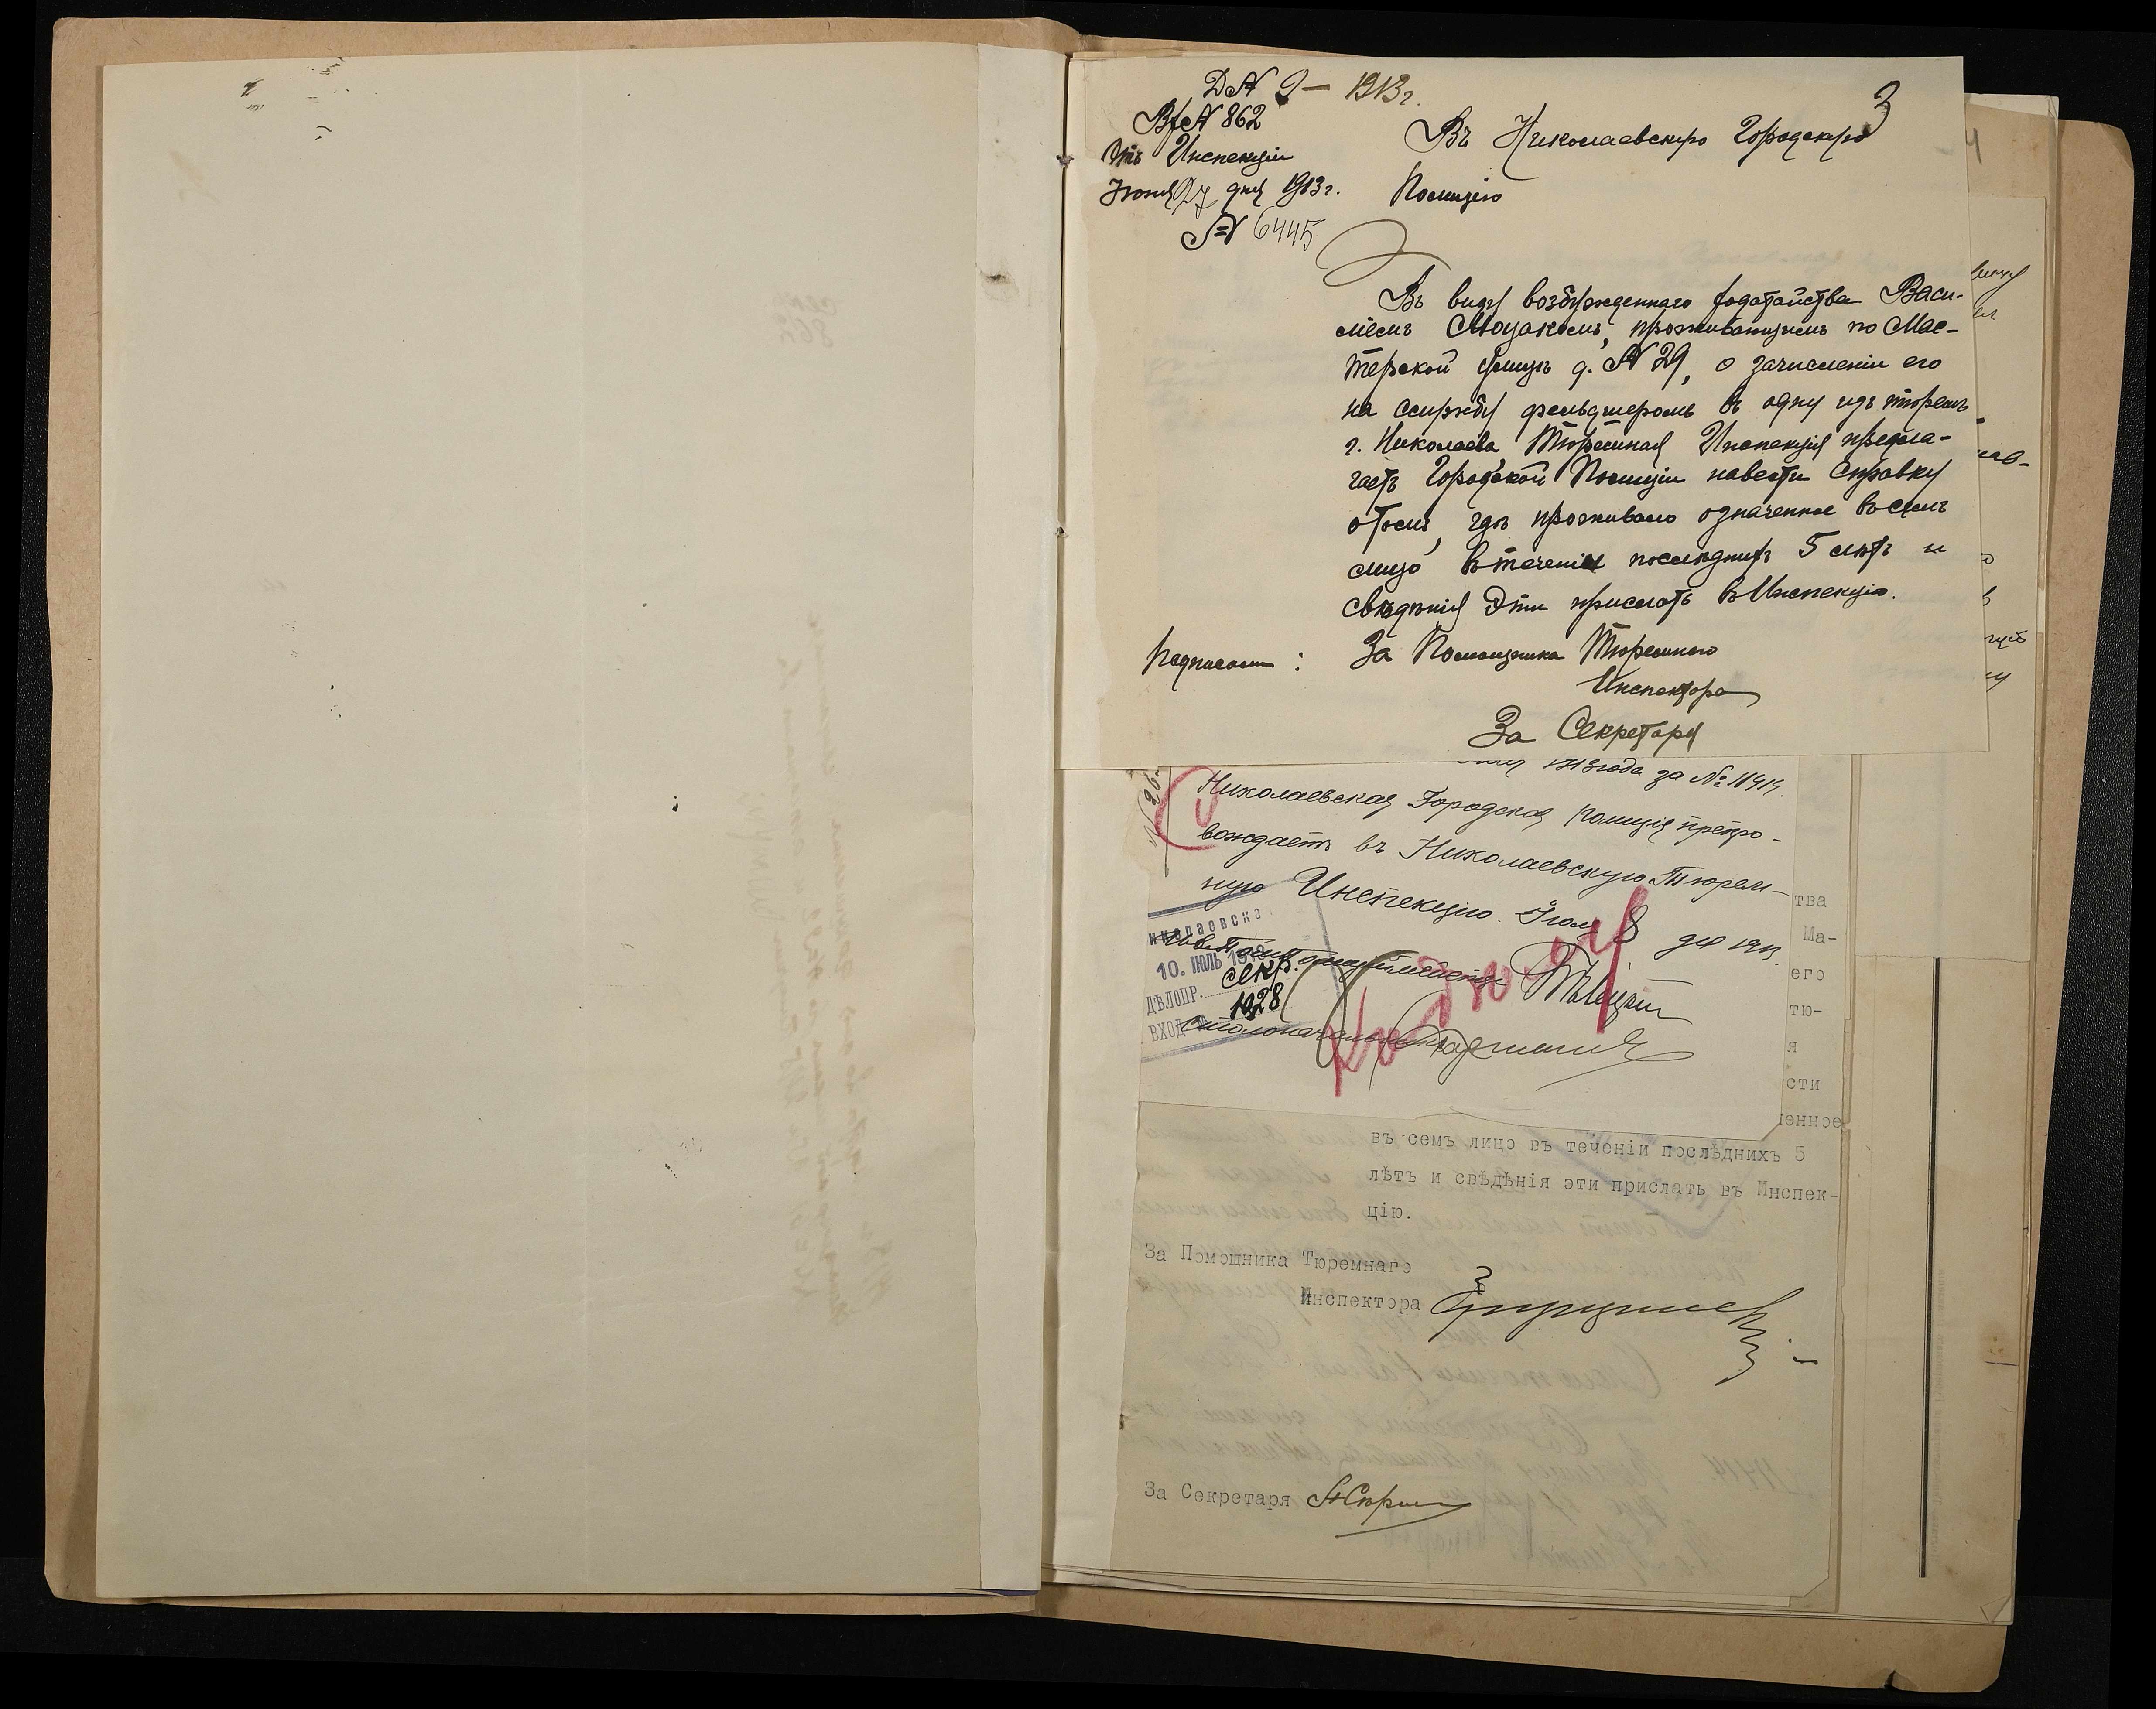 Д № 9 — 1913 г.
3
Вх № 862
Отъ Инспекціи
Іюня 27 дня 1913 г.
№ 6445
Въ Николаевскую Городскую
Полицію
Въ виду возбужденнаго ходатайства Васи-
ліемъ, проживающимъ по Мас-
терской улицѣ д. № 29, о зачисленіи его
на службу фельдшеромъ въ одну изъ тюремъ
г. Николаева, Тюремная Инспекція предла-
гаетъ Городской Полиціи навести справку
о томъ, гдѣ проживало означенное въ семъ
лицо въ теченіи послѣднихъ 5 лѣтъ и
свѣдѣнія эти прислать въ Инспекцію.
Подписали: За Помощника Тюремнаго
Инспектора
За Секретаря
1913 года за № 11414.
Николаевская Городская Полиція препро-
вождаетъ въ Николаевскую Тюрем-
ную Инспекцію. Іюля 8 дня 1913
николаевско
10. ІЮЛЬ 1913
ДѢЛОПР. секр.
ВХОД. 1928
Столоначальникъ
тва
Ма-
его
тю-
я
сти
енное
въ семъ лицо въ теченіи послѣднихъ 5
лѣтъ и свѣдѣнія эти прислать въ Инспек-
цію.
За Помощника Тюремнаго
Инспектора
За Секретаря